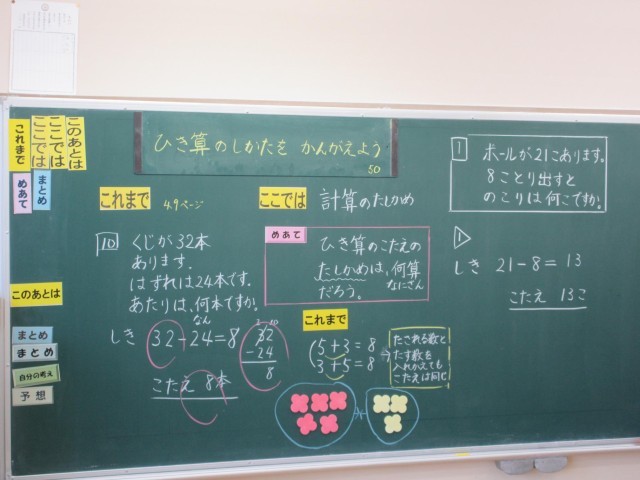 ひき算のしかたを かんがえよう
50
これまで
ここでは
ここでは
このあとは
めあて
まとめ
このあとは
まとめ
まとめ
自分の考え
予想
これまで 4.9ページ
10 くじが32本
あります.
はずれは24本です.
あたりは、何本ですか.
なん
しき 32-24=8
2 10
32
-24
8
こたえ 8本
ここでは 計算のたしかめ
めあて
ひき算のこたえの
たしかめは、何算
なにざん
だろう。
これまで
5+3=8
3+5=8
たされる数と
たす数を
入れかえても
こたえは同じ
1 ボールが21こあります.
8ことり出すと
のこりは何こですか.
1
しき 21-8=13
こたえ 13こ